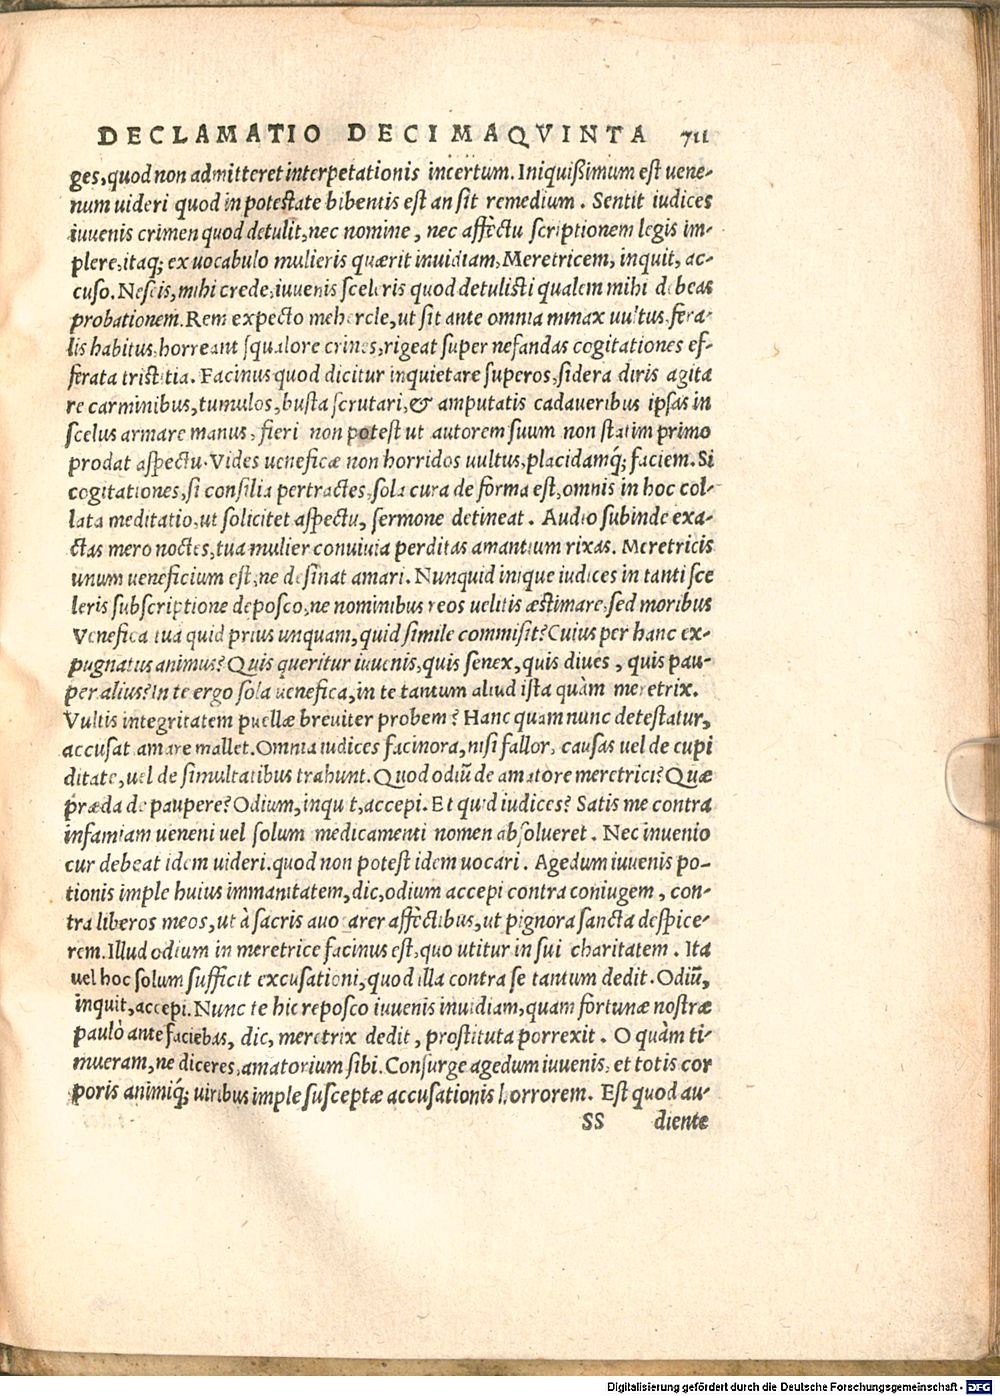 DECLAMATIO DECIMAQVINTA 711
ges, quod non admitteret interpetationis incertum. Iniquißimum est uene-
num uideri quod in potestate bibentis est an sit remedium. Sentit iudices
iuuenis crimen quod detulit, nec nomine, nec affectu scriptionem legis im-
plere, itaq; ex uocabulo mulieris quærit inuidiam, Meretricem, inquit, ac-
cuso. Nescis, mihi crede, iuuenis sceleris quod detulisti qualem mihi debeas
probationem. Rem expecto mehercle, ut sit ante omnia minax uultus, fera-
lis habitus, horreant squalore crines, rigeat super nefandas cogitationes ef-
ferata tristitia. Facinus quod dicitur inquietare superos, sidera diris agita
re carminibus, tumulos, busta scrutari, & amputatis cadaueribus ipsas in
scelus armare manus, fieri non potest ut autorem suum non statim primo
prodat aspectu. Vides ueneficæ non horridos uultus, placidamq́; faciem. Si
cogitationes, si consilia pertractes, sola cura de forma est, omnis in hoc col-
lata meditatio, ut solicitet aspectu, sermone detineat. Audio subinde exa-
ctas mero noctes, tua mulier conuiuia perditas amantium rixas. Meretricis
unum ueneficium est, ne desinat amari. Nunquid inique iudices in tanti sce
leris subscriptione deposco, ne nominibus reos uelitis æstimare, sed moribus
Venefica tua quid prius unquam, quid simile commisit? Cuius per hanc ex-
pugnatus animus? Quis queritur iuuenis, quis senex, quis diues, quis pau-
per alius? In te ergo sola uenefica, in te tantum aliud ista quàm meretrix.
Vultis integritatem puellæ breuiter probem? Hanc quam nunc detestatur,
accusat amare mallet. Omnia iudices facinora, nisi fallor, causas uel de cupi
ditate, uel de simultatibus trahunt. Quod odiū de amatore meretrici? Quæ
præda de paupere? Odium, inquit, accepi. Et quid iudices? Satis me contra
infamiam ueneni uel solum medicamenti nomen absolueret. Nec inuenio
cur debeat idem uideri, quod non potest idem uocari. Agedum iuuenis po-
tionis imple huius immanitatem, dic, odium accepi contra coniugem, con-
tra liberos meos, ut à sacris auocarer affectibus, ut pignora sancta despice-
rem. Illud odium in meretrice facinus est, quo utitur in sui charitatem. Ita
uel hoc solum sufficit excusationi, quod illa contra se tantum dedit. Odiū,
inquit, accepi. Nunc te hic reposco iuuenis inuidiam, quam fortunæ nostræ
paulò ante faciebas, dic, meretrix dedit, prostituta porrexit. O quàm ti-
mueram, ne diceres, amatorium sibi. Consurge agedum iuuenis, et totis cor
poris animiq́; uiribus imple susceptæ accusationis horrorem. Est quod au-
SS diente
Digitalisierung gefördert durch die Deutsche Forschungsgemeinschaft - DFG